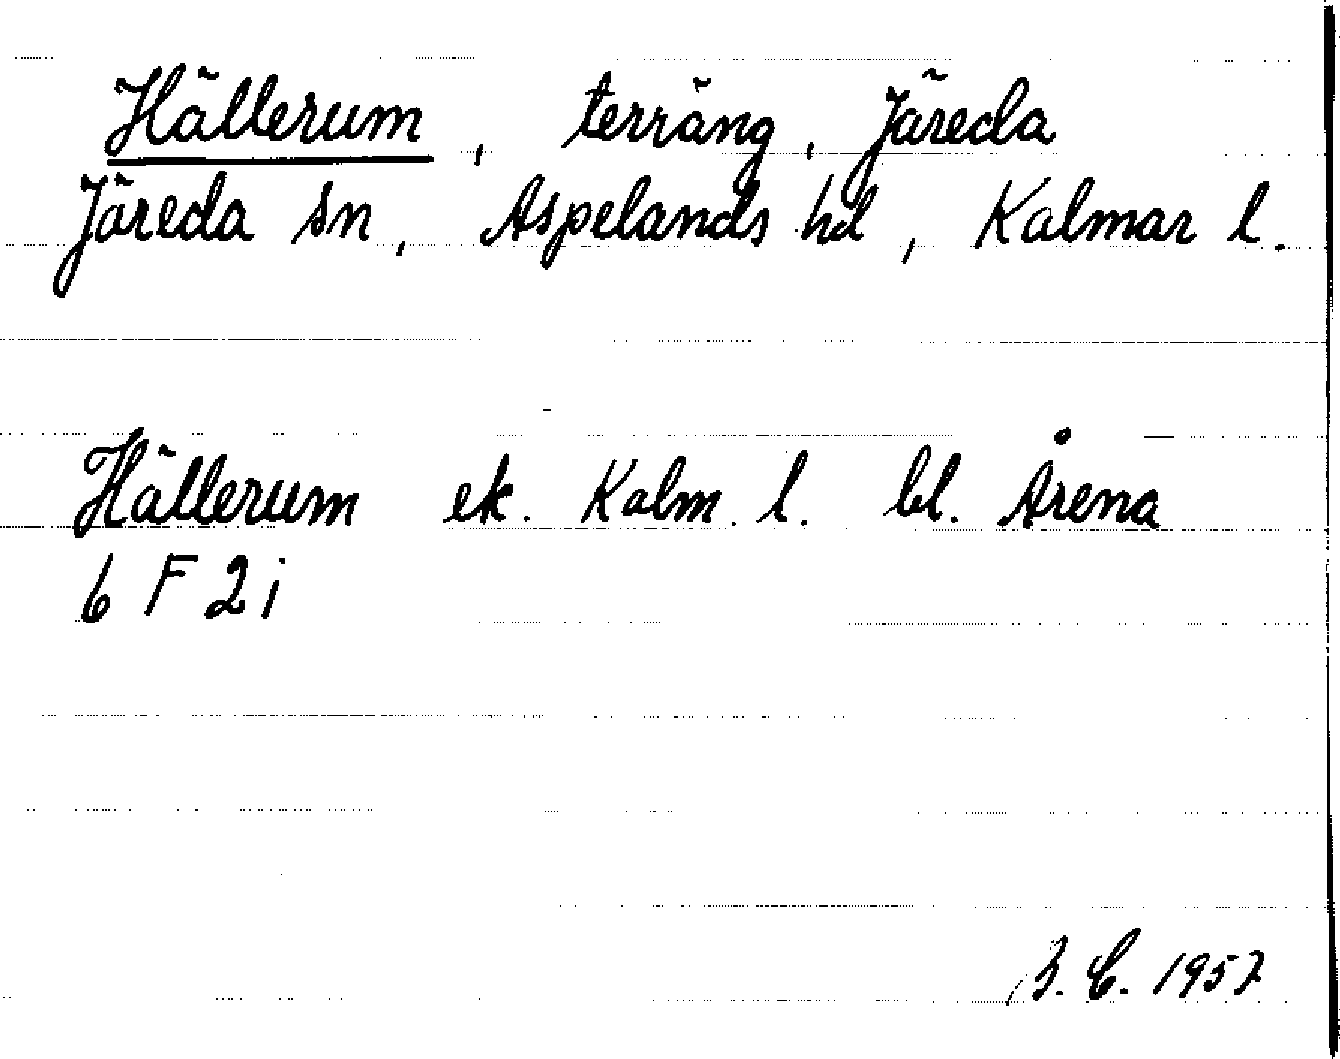 Hällerum, terräng, Järeda
Järeda sn, Aspelands hd, Kalmar l.
Hällerum ek. Kalm. l. bl. Årena
6 F 2 i
B. C. 1957